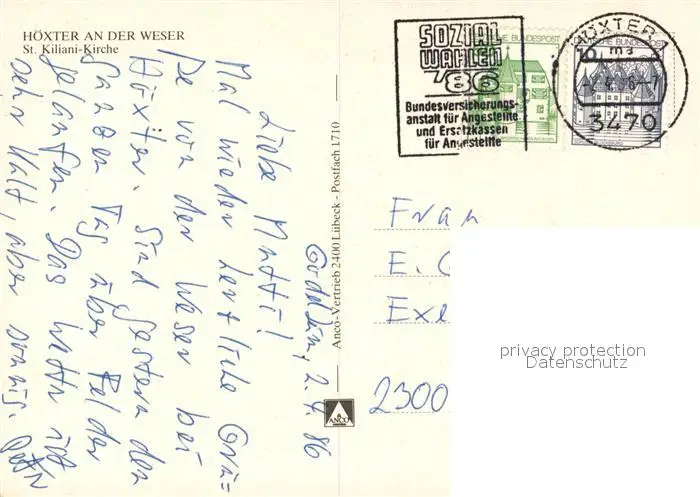 HÖXTER AN DER WESER
St. Kiliani-Kirche
2.4.86
Liebe Mutti!
Mal wieder herzliche Grü=
ße von der Weser bei
Höxter. Sind gestern den
ganzen Tag über Felder
gelaufen. Das Wetter ist
sehr kalt, aber sonnig.
Anco-Vertrieb 2400 Lübeck - Postfach 1710
ANCO
SOZIAL
WAHLEN
'86
Bundesversicherungs-
anstalt für Angestellte
und Ersatzkassen
für Angestellte
DEUTSCHE BUNDESPOST
HÖXTER 1
ma
3470
Frau
E. C
Exe
2300
privacy protection
Datenschutz